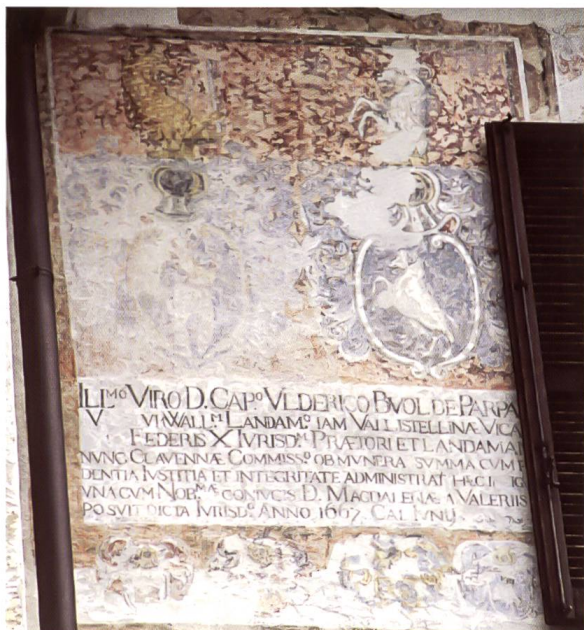 ILL.MO VIRO D. CAP.O VLDERICO BVOL DE PARPA
V VI WALL.M LANDAM.O IAM VALLISTELLINÆ VICA
FEDERIS X IVRISD.M PRÆTORI ET LANDAMA
NVNC CLAVENNÆ COMMISS.O OB MVNERA SVMMA CVM P
DENTIA IVSTITIA ET INTEGRITATE ADMINISTRAT HÆC I IG
VNA CVM NOB.MÆ CONIVGIS D. MAGDALENÆ A VALERIIS
POSVIT DICTA IVRISD.O ANNO 1667 CAL IVNIJ